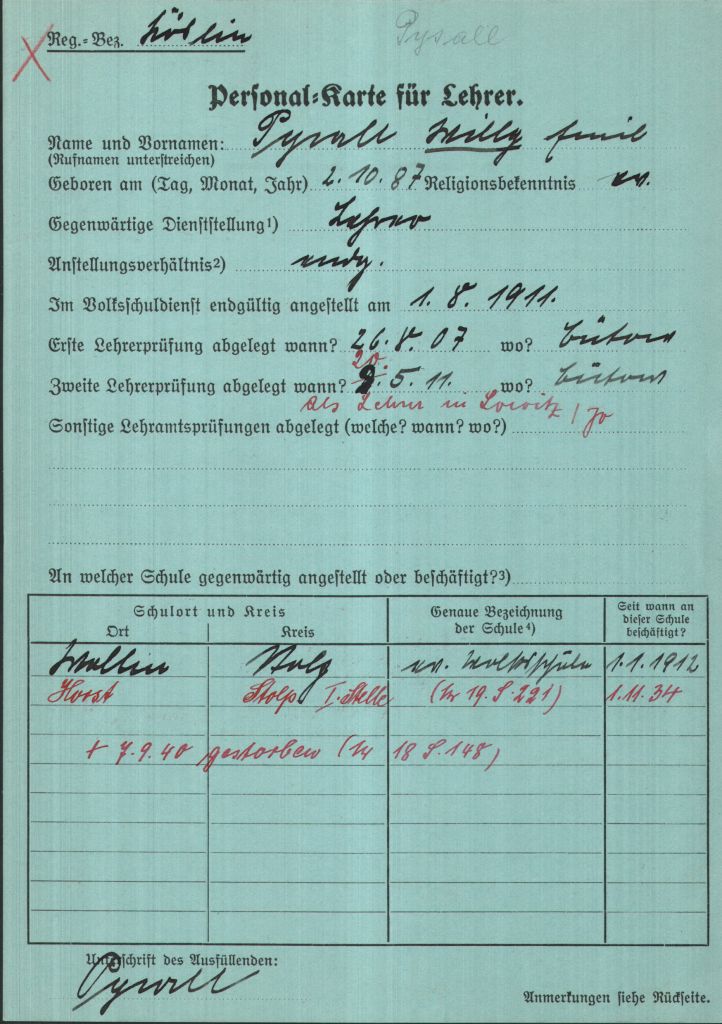 Reg.=Bez. Köslin
Pysall
Personal=Karte für Lehrer.
Name und Vornamen: Pysall Willy Emil
(Rufnamen unterstreichen)
Geboren am (Tag, Monat, Jahr) 2. 10. 87 Religionsbekenntnis ev.
Gegenwärtige Dienststellung¹) Lehrer
Anstellungsverhältnis²) endg.
Im Volksschuldienst endgültig angestellt am 1. 8. 1911.
Erste Lehrerprüfung abgelegt wann? 26. 8. 07 wo? Bütow
20.
Zweite Lehrerprüfung abgelegt wann? 5. 11. wo? Bütow
als Lehrer in
Sonstige Lehramtsprüfungen abgelegt (welche? wann? wo?)
An welcher Schule gegenwärtig angestellt oder beschäftigt?³)
Schulort und Kreis
Ort Kreis
Genaue Bezeichnung
der Schule⁴)
Seit wann an
dieser Schule
beschäftigt?
Wollin Stolp ev. Volksschule 1.1.1912
Horst Stolp I. Stelle (Kr 19. S. 221) 1.11.34
+ 7.9.40 gestorben (Kr 18 S. 148)
Unterschrift des Ausfüllenden:
Pysall
Anmerkungen siehe Rückseite.